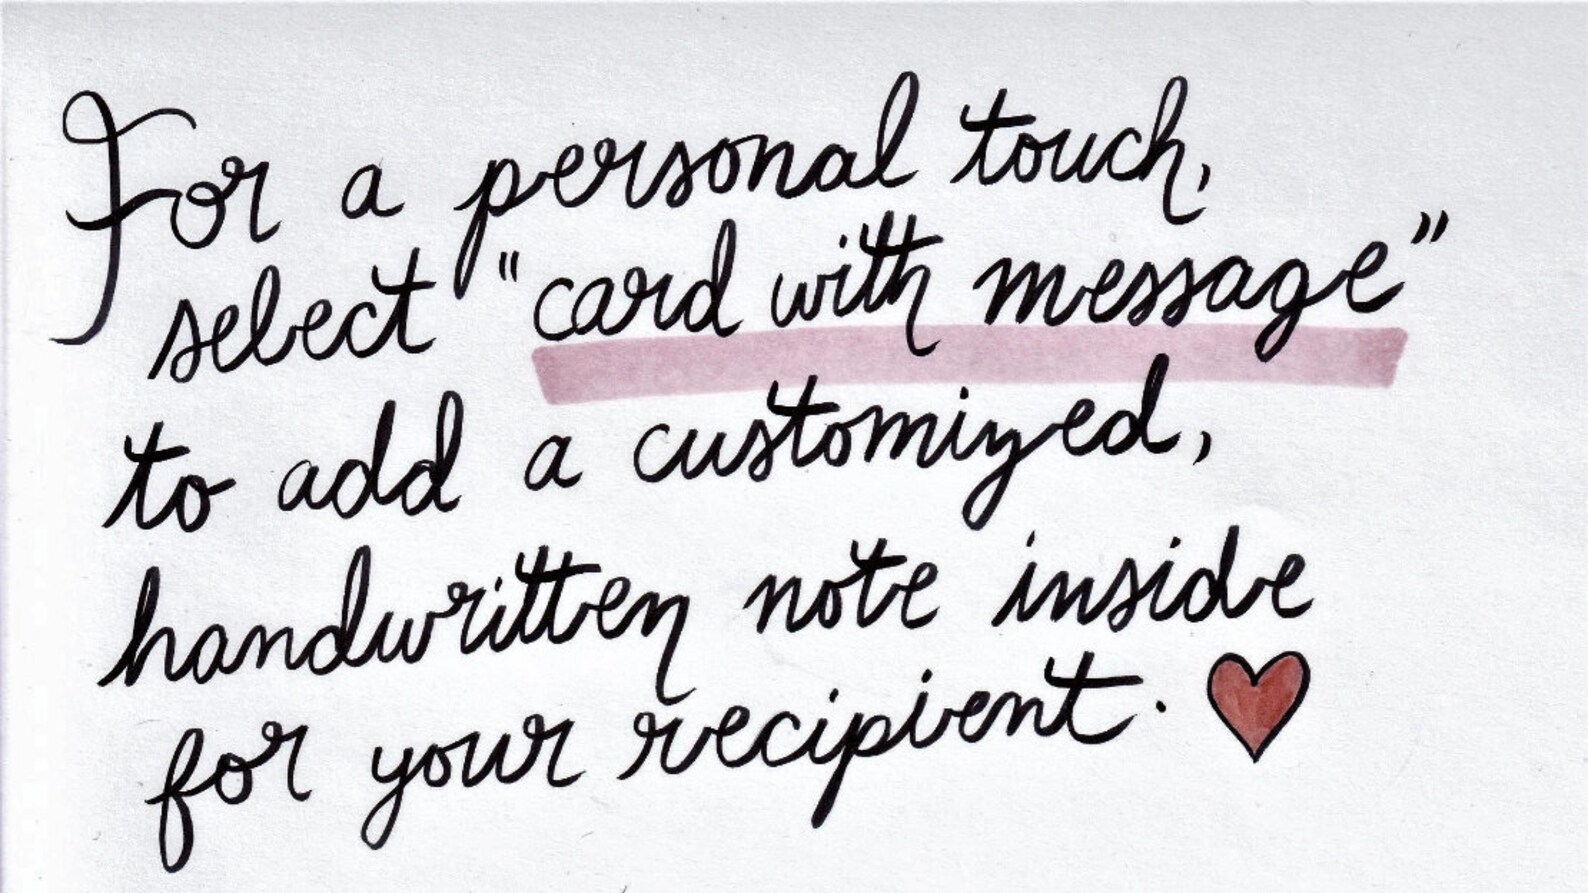 For a personal touch,
select "card with message"
to add a customized,
handwritten note inside
for your recipient. ♥